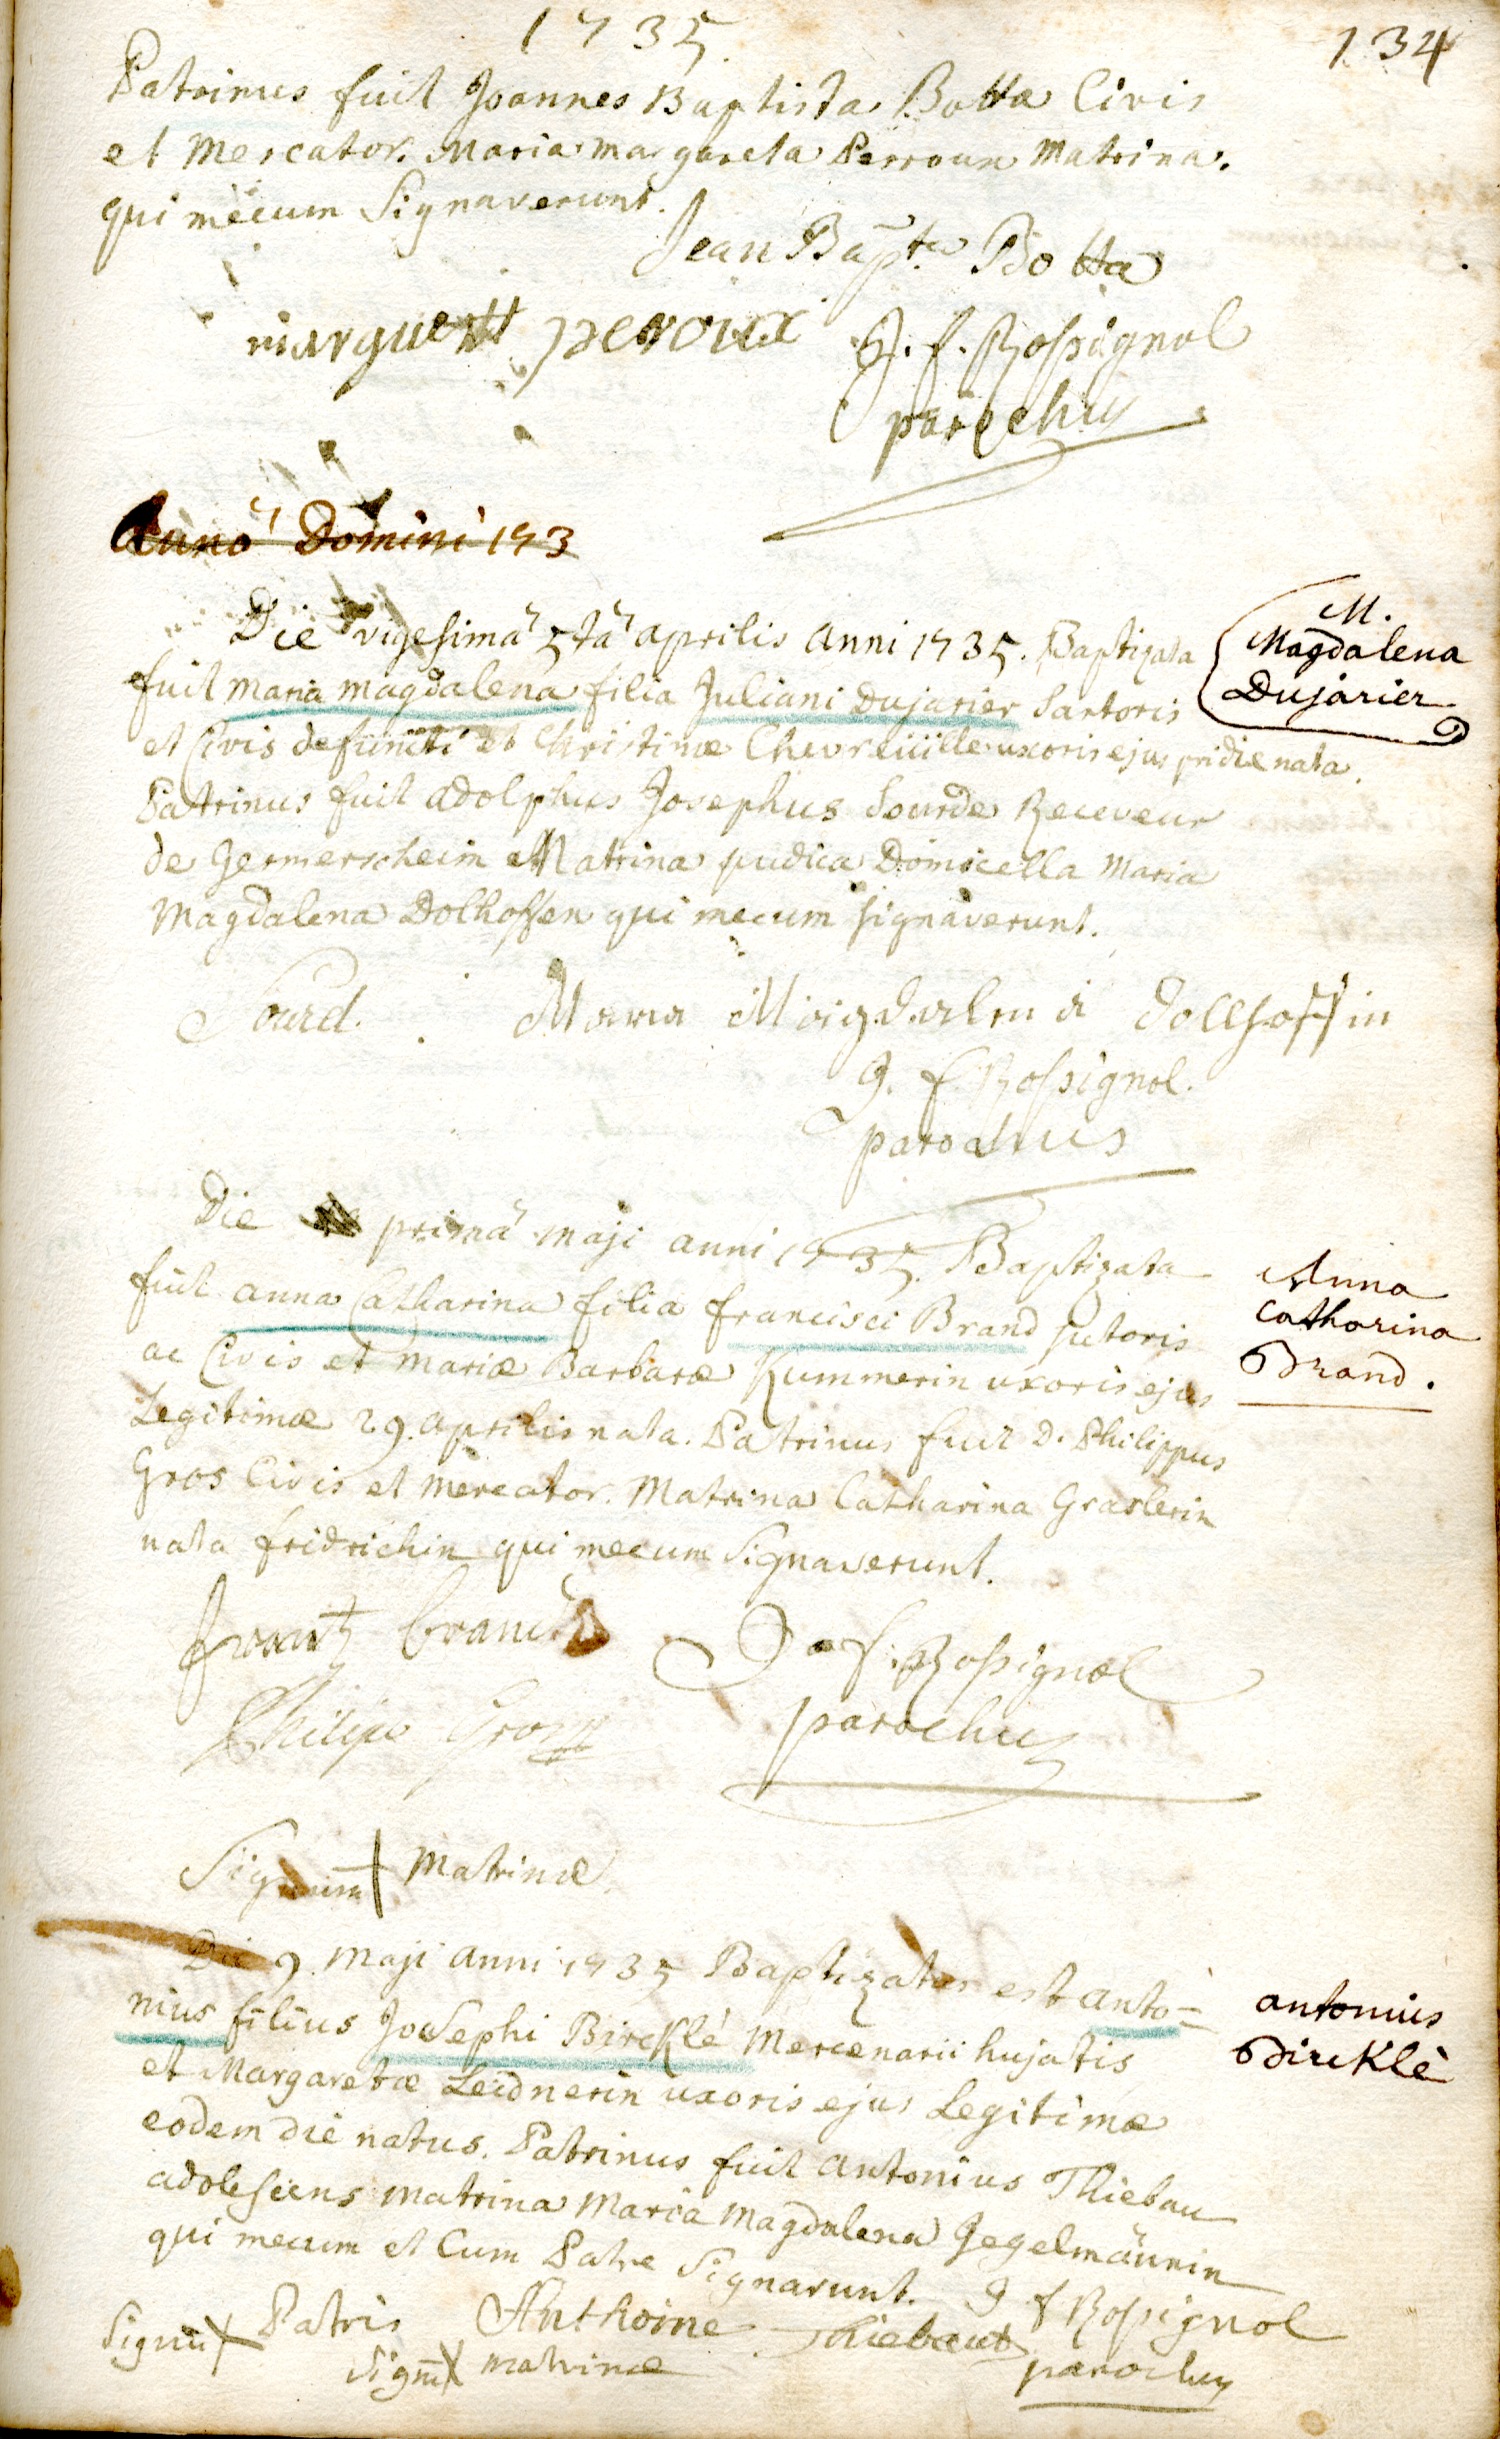 1735
134
Patrinus fuit Joannes Baptista Botta Civis
et Mercator. Maria margareta Perroux Matrina.
qui mecum Signaverunt.
Jean Bapta Botta
marguerit peroux J. f. Rossignol
parochus
Anno Domini 173
Die vigesimâ 5tâ aprilis anni 1735. Baptizata
fuit maria magdalena filia Juliani Dujarier Sartoris
et Civis defuncti et Christinæ Chevreüille uxoris ejus pridie nata.
Patrinus fuit adolphus Josephus Sourde Receveur
de Germersheim Matrina pudica Domicella Maria
Magdalena Dolhoffen qui mecum signaverunt.
M.
Magdalena
Dujarier
Sourd. Maria Magdalena dollhoffin
J. f. Rossignol.
parochus
Die primâ maji anni 1735. Baptizata
fuit anna Catharina filia francisci Brand sutoris
ac Civis et mariæ Barbaræ Kummerin uxoris ejus
Legitimæ 29. aprilis nata. Patrinus fuit D. Philippus
Gros Civis et mercator. Matrina Catharina Graslerin
nata fridrichin qui mecum Signaverunt.
Anna
Catharina
Brand.
frantz brand
J. f. Rossignol
Philipe Gross
parochus
Signum + Matrinæ
Die 9. Maji anni 1735 Baptizatus est anto=
nius filius Josephi Bircklé Mercenarii hujatis
et Margaretæ Leidnerin uxoris ejus Legitimæ
eodem die natus. Patrinus fuit antonius Thiebau
adolescens matrina maria magdalena Jegelmännin
qui mecum et Cum Patre Signarunt. J f Rossignol
parochus
antonius
Bircklé
Signū + Patris Anthoine Thiebaut
Signū + matrinæ